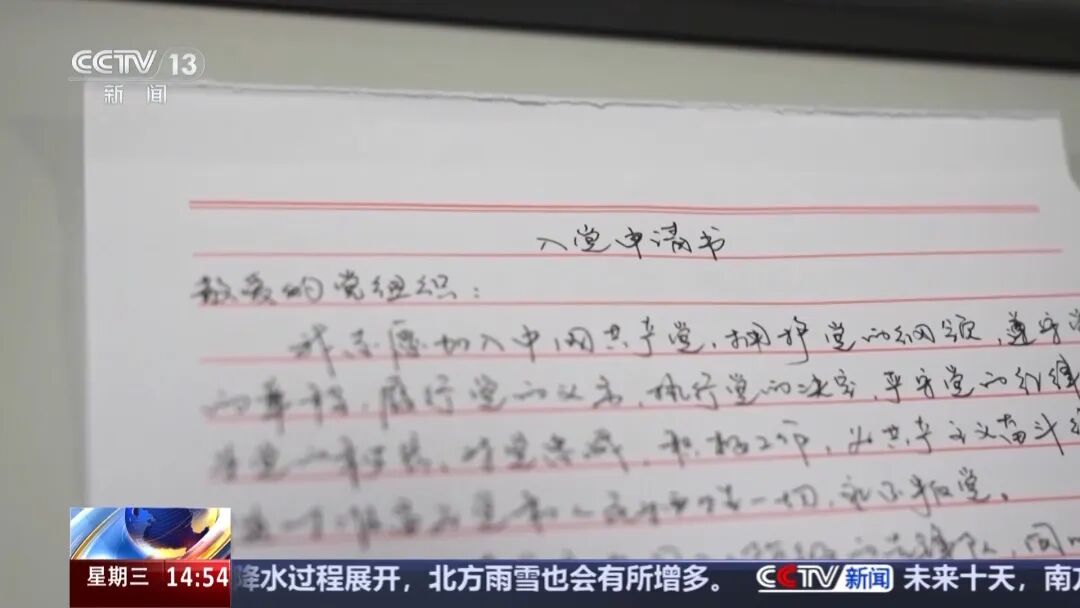 CCTV 13
新闻
入党申请书
敬爱的党组织：
我志愿加入中国共产党，拥护党的纲领，遵守党
的章程，履行党的义务，执行党的决定，严守党的纪律
积极工作，为共产主义奋斗终
一切，永不叛党。
星期三 14:54 降水过程展开，北方雨雪也会有所增多。 CCTV新闻 未来十天，南方